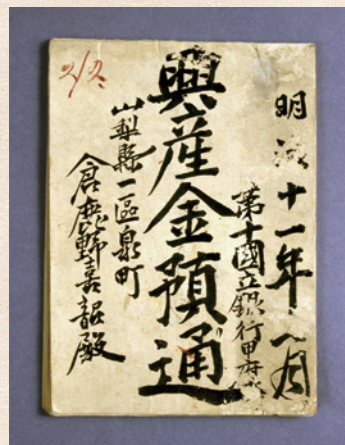 明治十一年一月
第十國立銀行甲府
興産金預通
山梨縣一區泉町
倉嘉殿
212